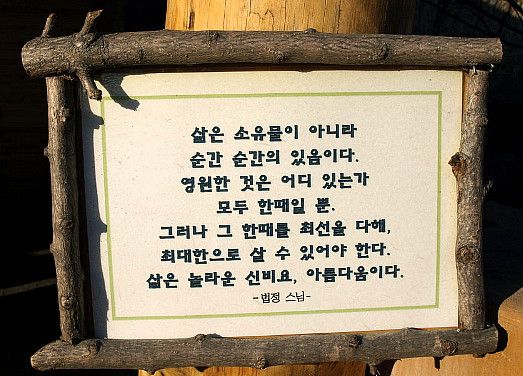 삶은 소유물이 아니라
순간 순간의 있음이다.
영원한 것은 어디 있는가
모두 한때일 뿐.
그러나 그 한때를 최선을 다해,
최대한으로 살 수 있어야 한다.
삶은 놀라운 신비요, 아름다움이다.
- 법정 스님-